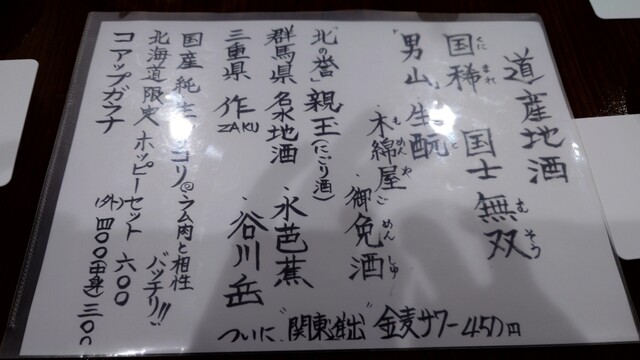 道産地酒
国稀 国士無双
くに まれ む そう
"男山"生酛
もと
・木綿屋・御免酒
も めん や ご めん しゅ
"北の誉"親王(にごり酒)
群馬県 名水地酒 ・水芭蕉
三重県 作 ・谷川岳
ZAKU
国産 ッコリ@ラム肉と相性
バッチリ!!
北海道限定 ホッピーセット 六〇〇
コアップガラナ (外)四〇〇(中身)三〇〇
ついに"関東進出"金麦サワー450円